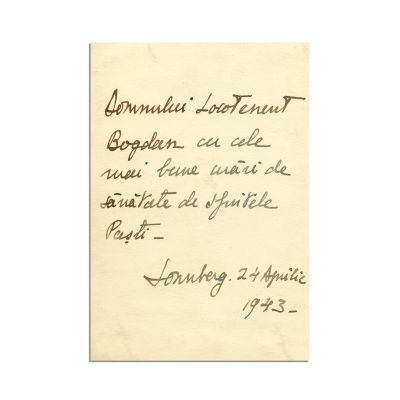 Domnului Locotenent
Bogdan cu cele
mai bune urări de
sănătate de Sfintele
Paști —
Sonnberg. 24 Aprilie
1943 —